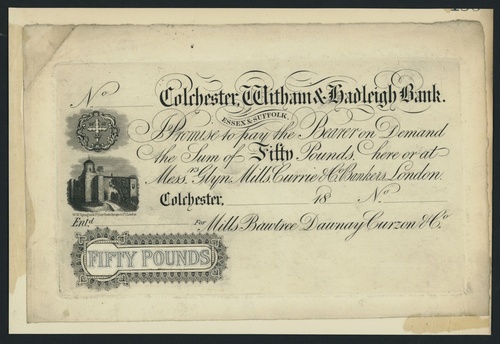 No Colchester, Witham & Hadleigh Bank.
ESSEX & SUFFOLK.
I Promise to pay the Bearer on Demand
the Sum of Fifty Pounds, here or at
Mess.rs Glyn, Mills, Currie & Co. Bankers, London.
Colchester, 18 No
Ent.d For Mills Bawtree Dawnay Curzon & Co.
FIFTY POUNDS